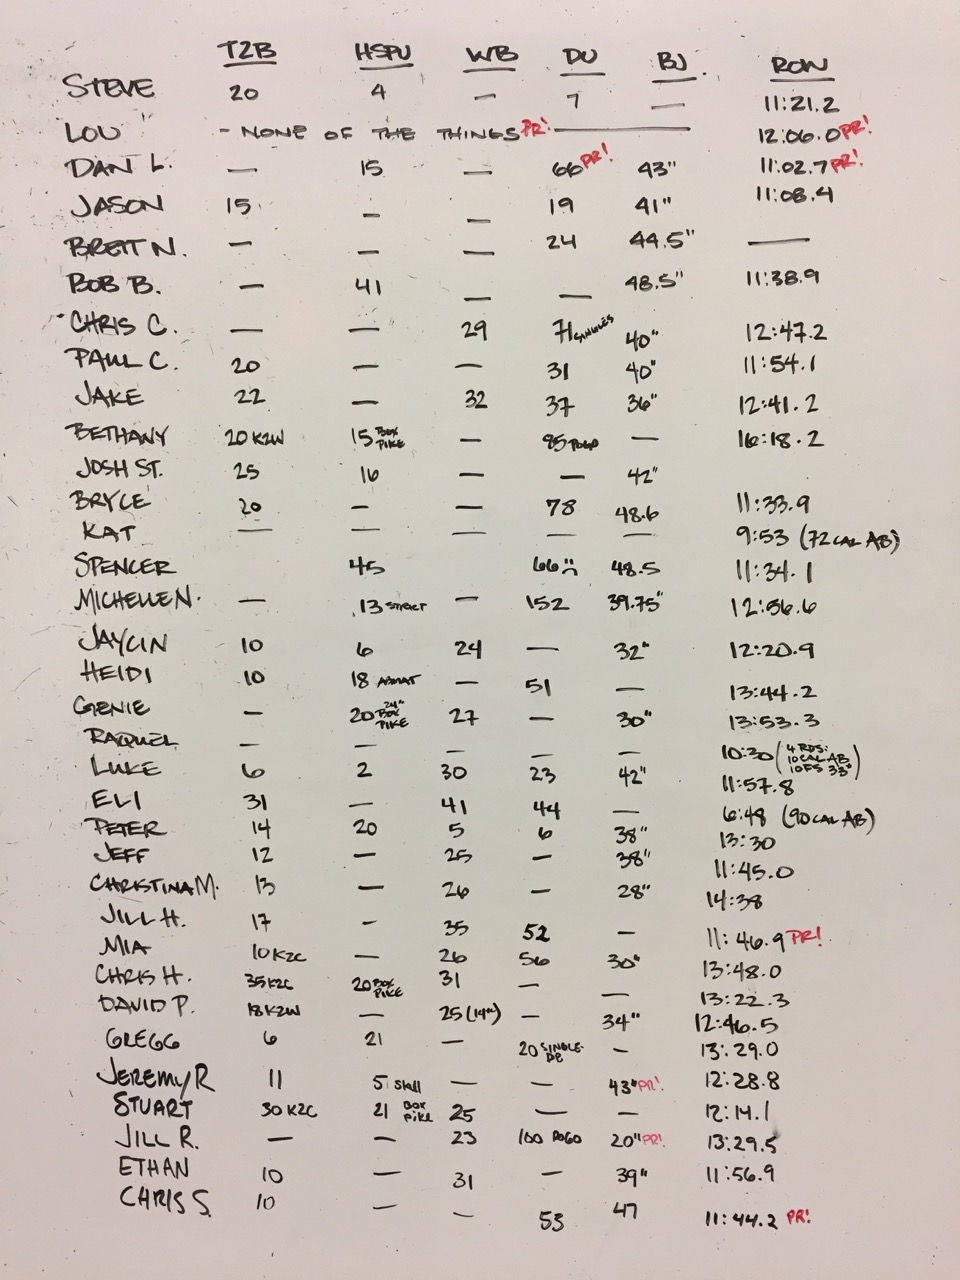 T2B HSPU WB DU BJ. ROW
STEVE 20 4 — 7 — 11:21.2
LOU - NONE OF THE THINGS PR! — 12:06.0 PR!
DAN L. — 15 — 66 PR! 43" 11:02.7 PR!
JASON 15 — — 19 41" 11:08.4
BRETT N. — — — 24 44.5" —
BOB B. — 41 — — 48.5" 11:38.9
CHRIS C. — — 29 71 SINGLES 40" 12:47.2
PAUL C. 20 — — 31 40" 11:54.1
JAKE 22 — 32 37 36" 12:41.2
BETHANY 20 K2W 15 BOX PIKE — 85 POGO — 16:18.2
JOSH ST. 25 16 — — 42"
BRYCE 20 — — 78 48.6 11:33.9
KAT — — — — — 9:53 (72 CAL AB)
SPENCER 45 66 :( 48.5 11:34.1
MICHELLE N. — 13 STRICT — 152 39.75" 12:56.6
JAYLIN 10 6 24 — 32" 12:20.9
HEIDI 10 18 ABMAT — 51 — 13:44.2
GENIE — 20 24" BOX PIKE 27 — 30" 13:53.3
RAQUEL — — — — — 10:30 (4 RDS: 10 CAL AB 10 FS 33#)
LUKE 6 2 30 23 42" 11:57.8
ELI 31 — 41 44 — 6:48 (90 CAL AB)
PETER 14 20 5 6 38" 13:30
JEFF 12 — 25 — 38" 11:45.0
CHRISTINA M. 13 — 26 — 28" 14:38
JILL H. 17 - 35 52 — 11:46.9 PR!
MIA 10 K2C — 26 56 30" 13:48.0
CHRIS H. 35 K2C 20 BOX PIKE 31 — — 13:22.3
DAVID P. 18 K2W — 25 (14#) — 34" 12:46.5
GREGG 6 21 — 20 SINGLE DB — 13:29.0
JEREMY R 11 5 Skull — — 43" PR! 12:28.8
STUART 30 K2C 21 BOX PIKE 25 — — 12:14.1
JILL R. — — 23 100 POGO 20" PR! 13:29.5
ETHAN 10 — 31 — 39" 11:56.9
CHRIS S. 10 — — 53 47 11:44.2 PR!